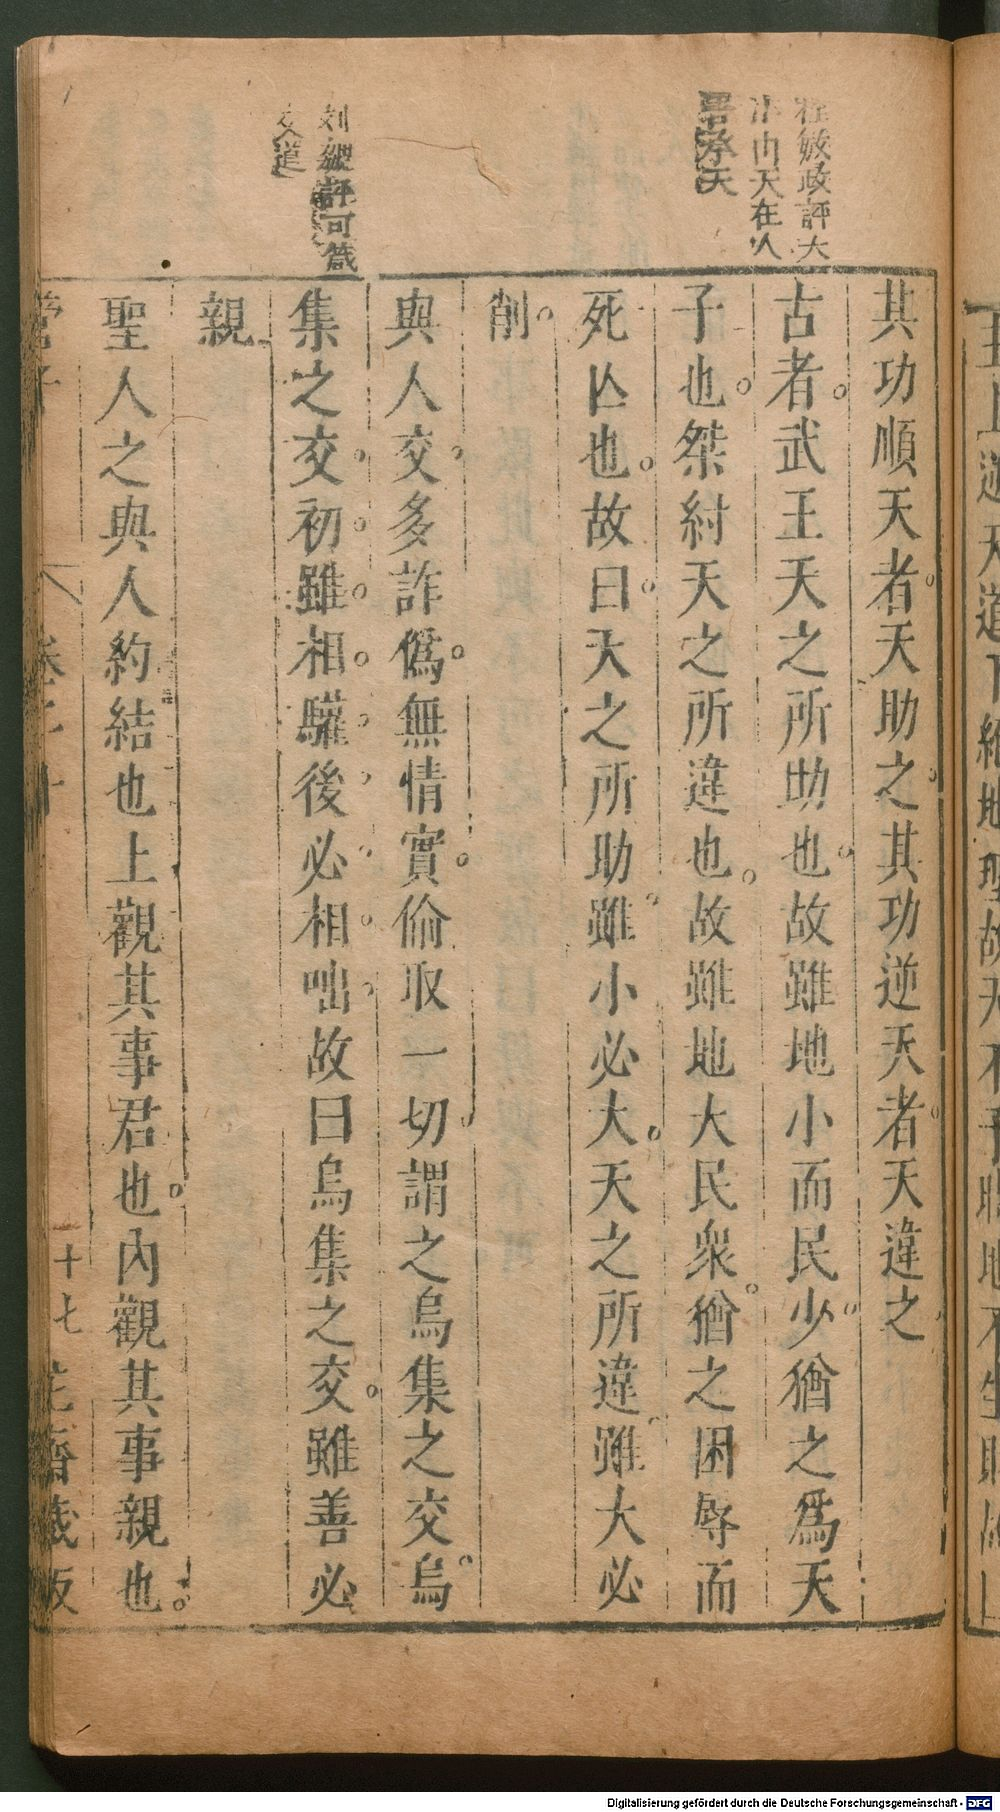 其功順天者天助之其功逆天者天違之
古者武王天之所助也故雖地小而民少猶之爲天
子也桀紂天之所違也故雖地大民衆猶之困辱而
死亡也故曰天之所助雖小必大天之所違雖大必
削
與人交多詐僞無情實偷取一切謂之烏集之交烏
集之交初雖相驩後必相咄故曰烏集之交雖善必
親
聖人之與人約結也上觀其事君也內觀其事親也
敏政評大
小由天在人
承天
評可箴
交道
十七 花齋藏板
Digitalisierung gefördert durch die Deutsche Forschungsgemeinschaft - DFG